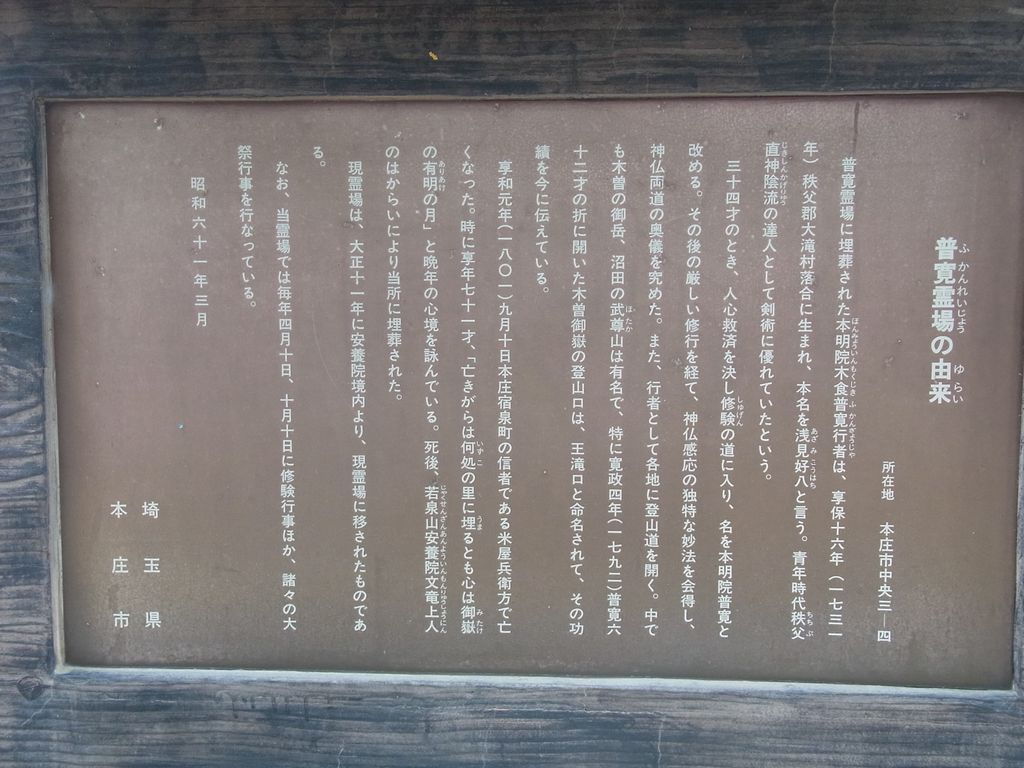 普寛霊場の由来
所在地　本庄市中央三―四
普寛霊場に埋葬された本明院木食普寛行者は、享保十六年（一七三一
年）秩父郡大滝村落合に生まれ、本名を浅見好八と言う。青年時代秩父
直神陰流の達人として剣術に優れていたという。
三十四才のとき、人心救済を決し修験の道に入り、名を本明院普寛と
改める。その後の厳しい修行を経て、神仏感応の独特な妙法を会得し、
神仏両道の奥儀を究めた。また、行者として各地に登山道を開く。中で
も木曽の御岳、沼田の武尊山は有名で、特に寛政四年（一七九二）普寛六
十二才の折に開いた木曽御嶽の登山口は、王滝口と命名されて、その功
績を今に伝えている。
享和元年（一八〇一）九月十日本庄宿泉町の信者である米屋兵衛方で亡
くなった。時に享年七十一才、「亡きがらは何処の里に埋るとも心は御嶽
の有明の月」と晩年の心境を詠んでいる。死後、若泉山安養院文竜上人
のはからいにより当所に埋葬された。
現霊場は、大正十一年に安養院境内より、現霊場に移されたものであ
る。
なお、当霊場では毎年四月十日、十月十日に修験行事ほか、諸々の大
祭行事を行なっている。
昭和六十一年三月
埼玉県
本庄市